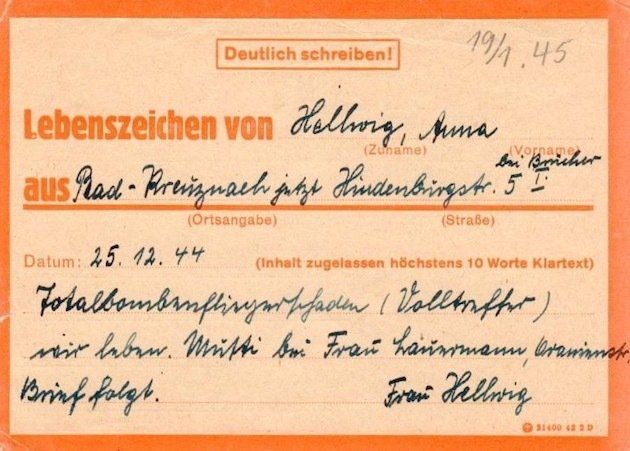 Deutlich schreiben!
19/1. 45
Lebenszeichen von Hellwig, Anna
(Zuname) (Vorname)
bei Brücher
aus Bad-Kreuznach jetzt Hindenburgstr. 5 I
(Ortsangabe) (Straße)
Datum: 25. 12. 44 (Inhalt zugelassen höchstens 10 Worte Klartext)
Totalbombenfliegerschaden (Volltreffer)
wir leben. Mutti bei Frau Lauermann, Oranienstr,
Brief folgt. Frau Hellwig
21400 42 2 D